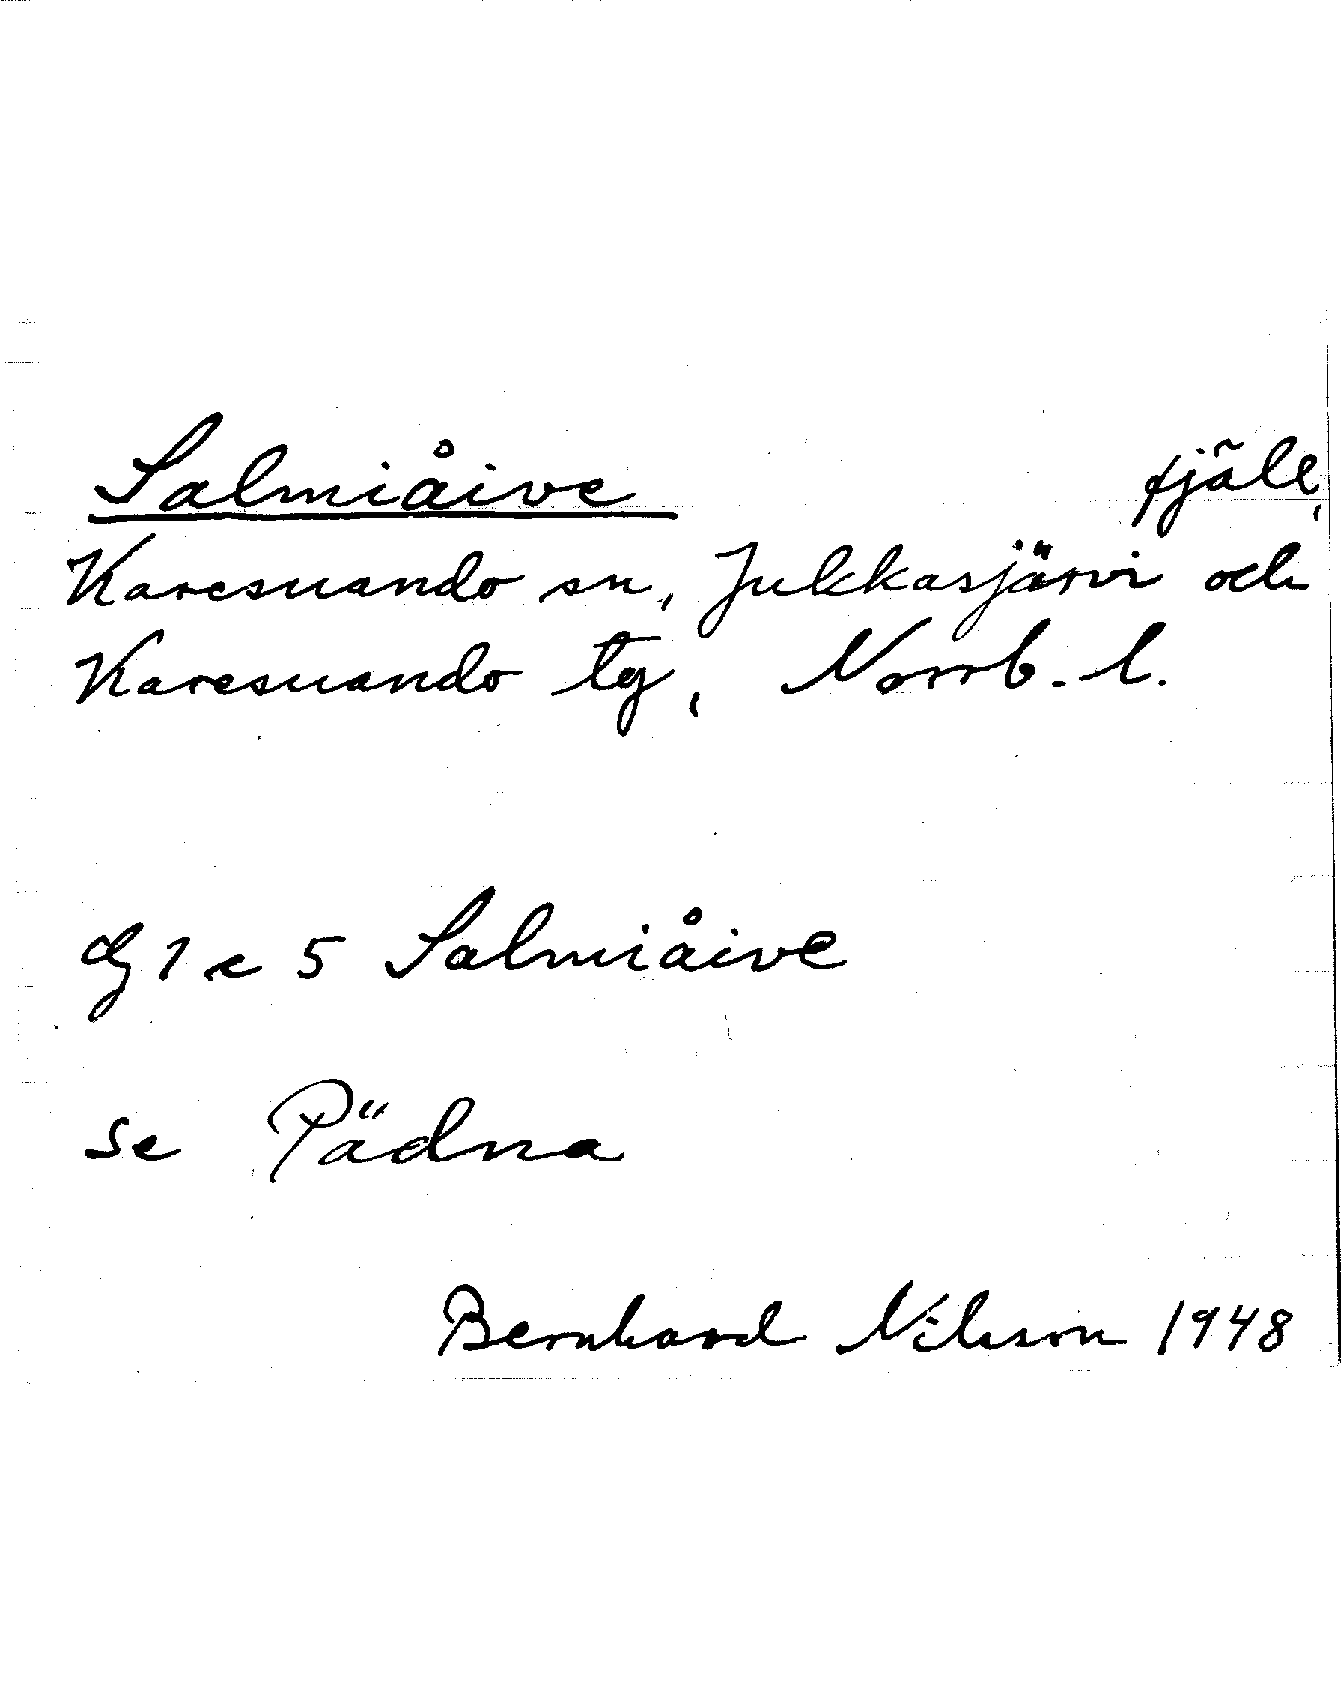 Salmiåive fjäll,
Karesuando sn, Jukkasjärvi och
Karesuando tg, Norrb. l.
1 c 5 Salmiåive
se Pädna
Bernhard Nilsson 1948